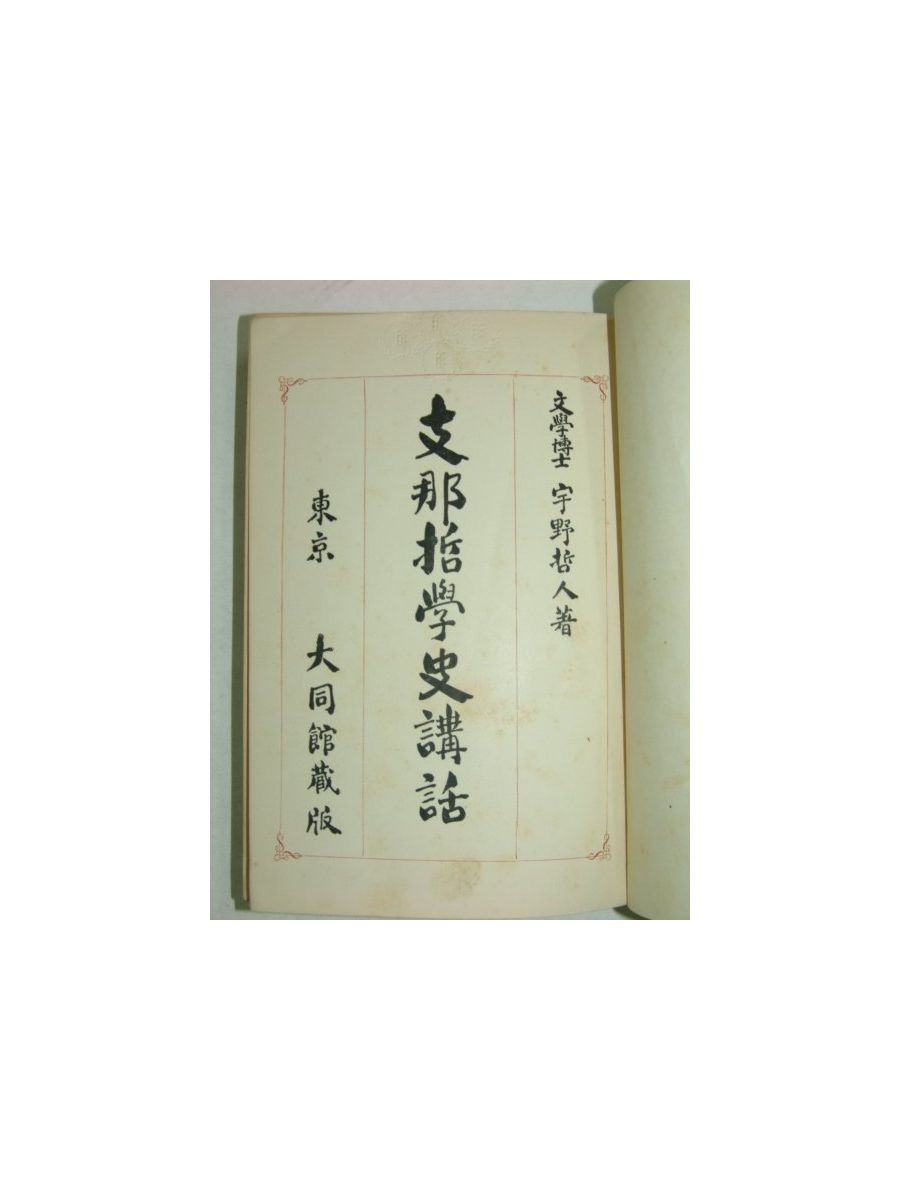 文學博士 宇野哲人著
支那哲學史講話
東京 大同館藏版